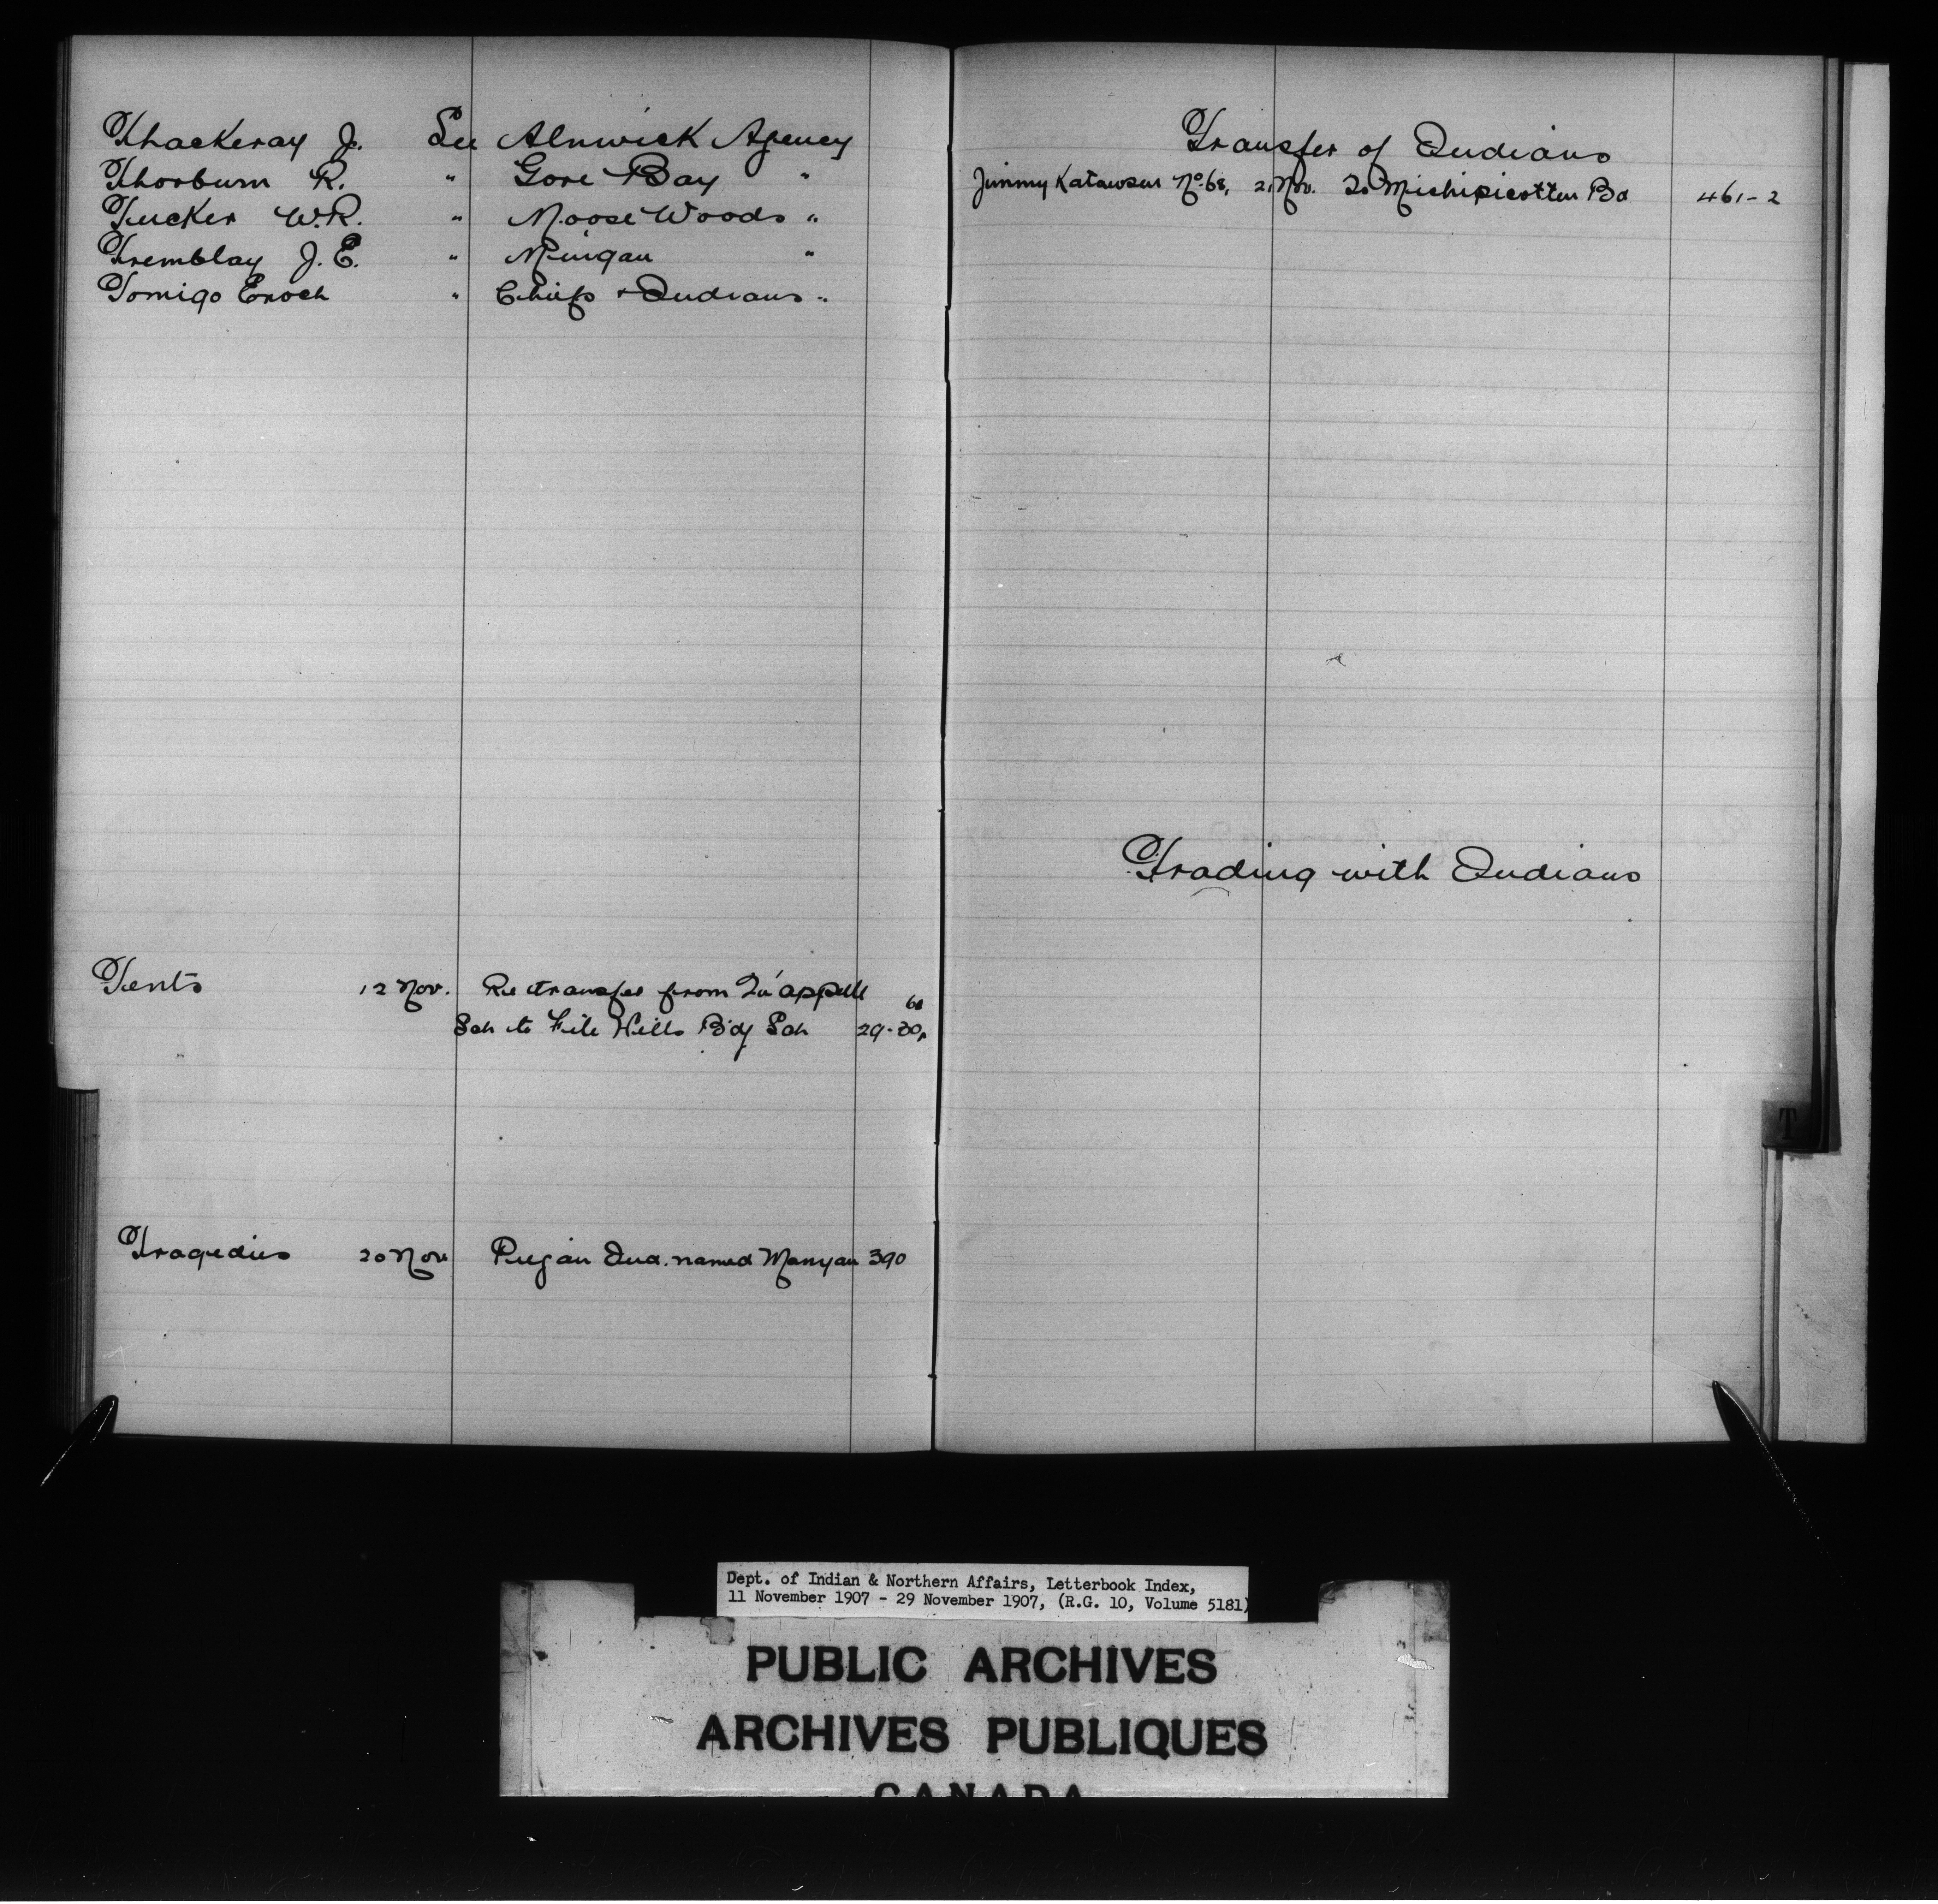 Thackeray J. See Alnwick Agency
Thorburn R. " Gore Bay "
Tucker W.R. " Moose Woods "
Tremblay J.E. " Mingan "
Tomigo Enoch " Chiefs & Indians "
Tents 12 Nov. Re transfer from Qu'appelle 68
Sch to File Hills B'd'g Sch 29-30,
Tragedies 20 Nov Peigan Ind. named Manyan 390
Transfer of Indians
Jimmy Katawsen No. 68, 21 Nov. To Michipicotten Bd 461-2
Trading with Indians
T
Dept. of Indian & Northern Affairs, Letterbook Index,
11 November 1907 - 29 November 1907, (R.G. 10, Volume 5181)
PUBLIC ARCHIVES
ARCHIVES PUBLIQUES
CANADA